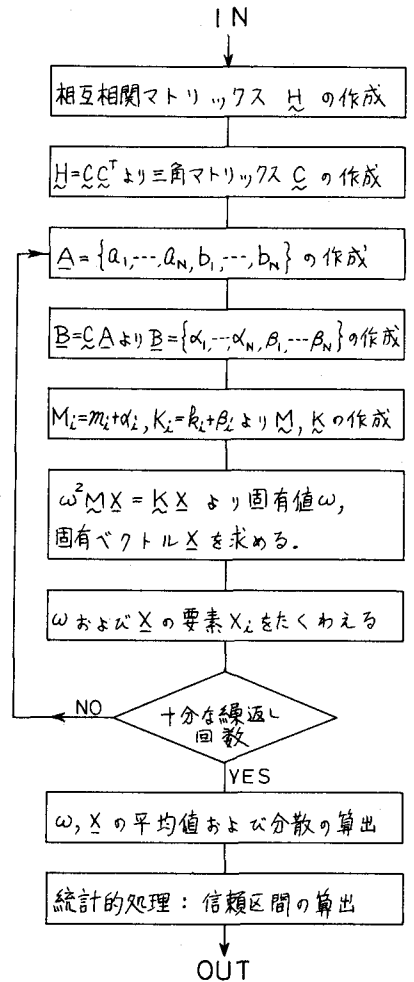 IN
相互相関マトリックス H の作成
H=CCᵀより三角マトリックス C の作成
A={a₁,---,a_N,b₁,---,b_N} の作成
B=CAより B={α₁,--,α_N,β₁,---β_N}の作成
Mᵢ=mᵢ+αᵢ,Kᵢ=kᵢ+βᵢ より M, K の作成
ω²MX = KX より固有値ω,
固有ベクトル X を求める.
ω および X の要素 Xᵢ をたくわえる
十分な繰返し
回数
NO
YES
ω, X の平均値および分散の算出
統計的処理: 信頼区間の算出
OUT